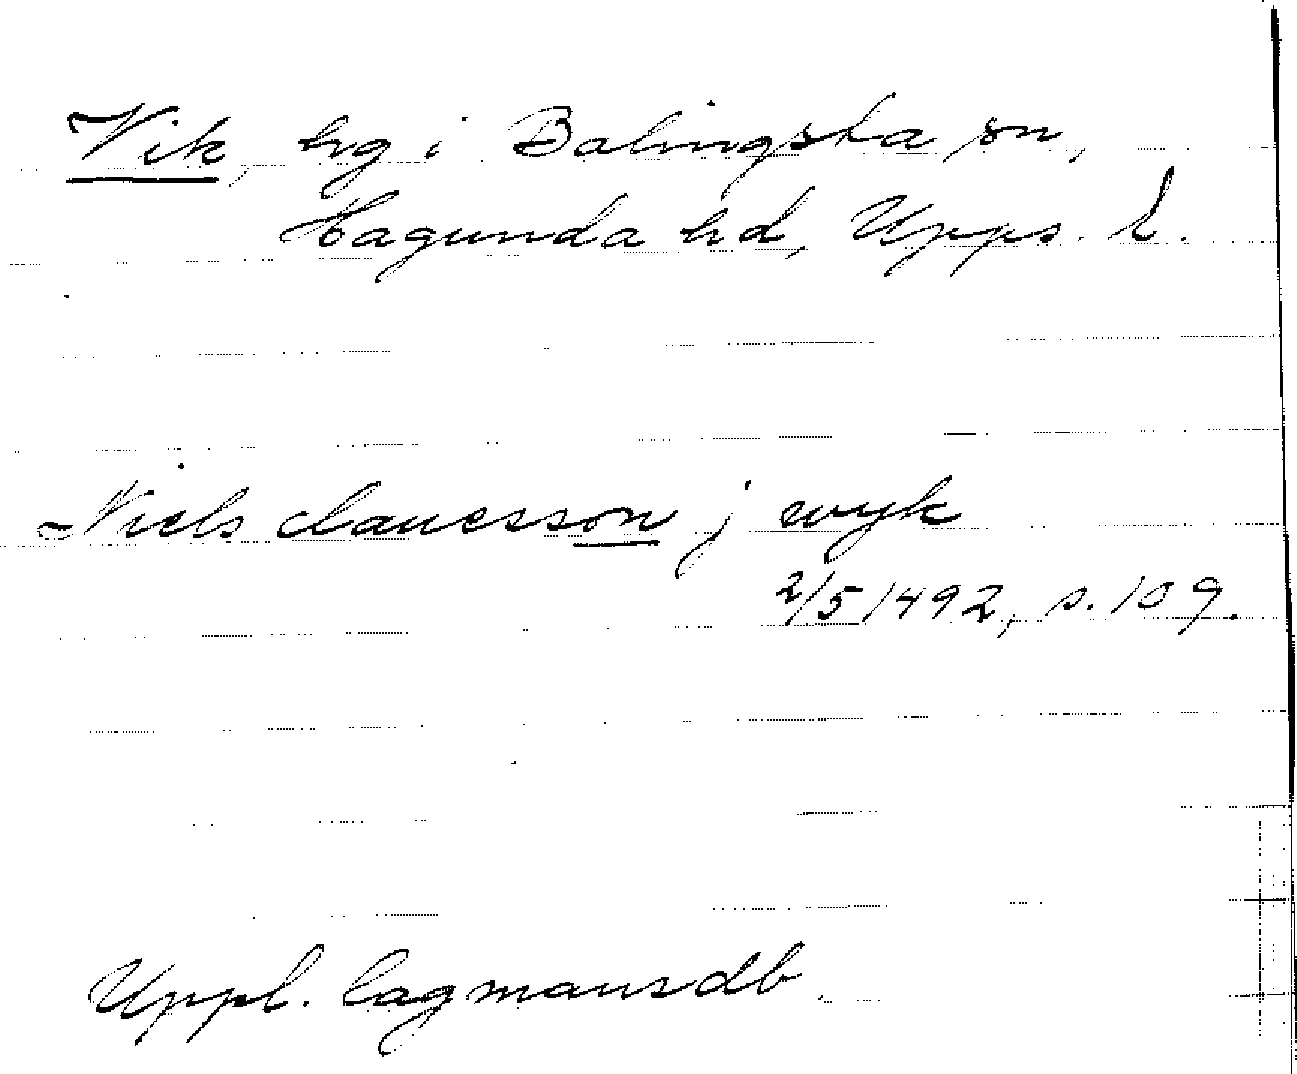 Vik, hg i Balingsta sn,
Hagunda hd, Upps. l.
Niels clauesson j wyk
2/5 1492, s. 109.
Uppl. lagmansdb.